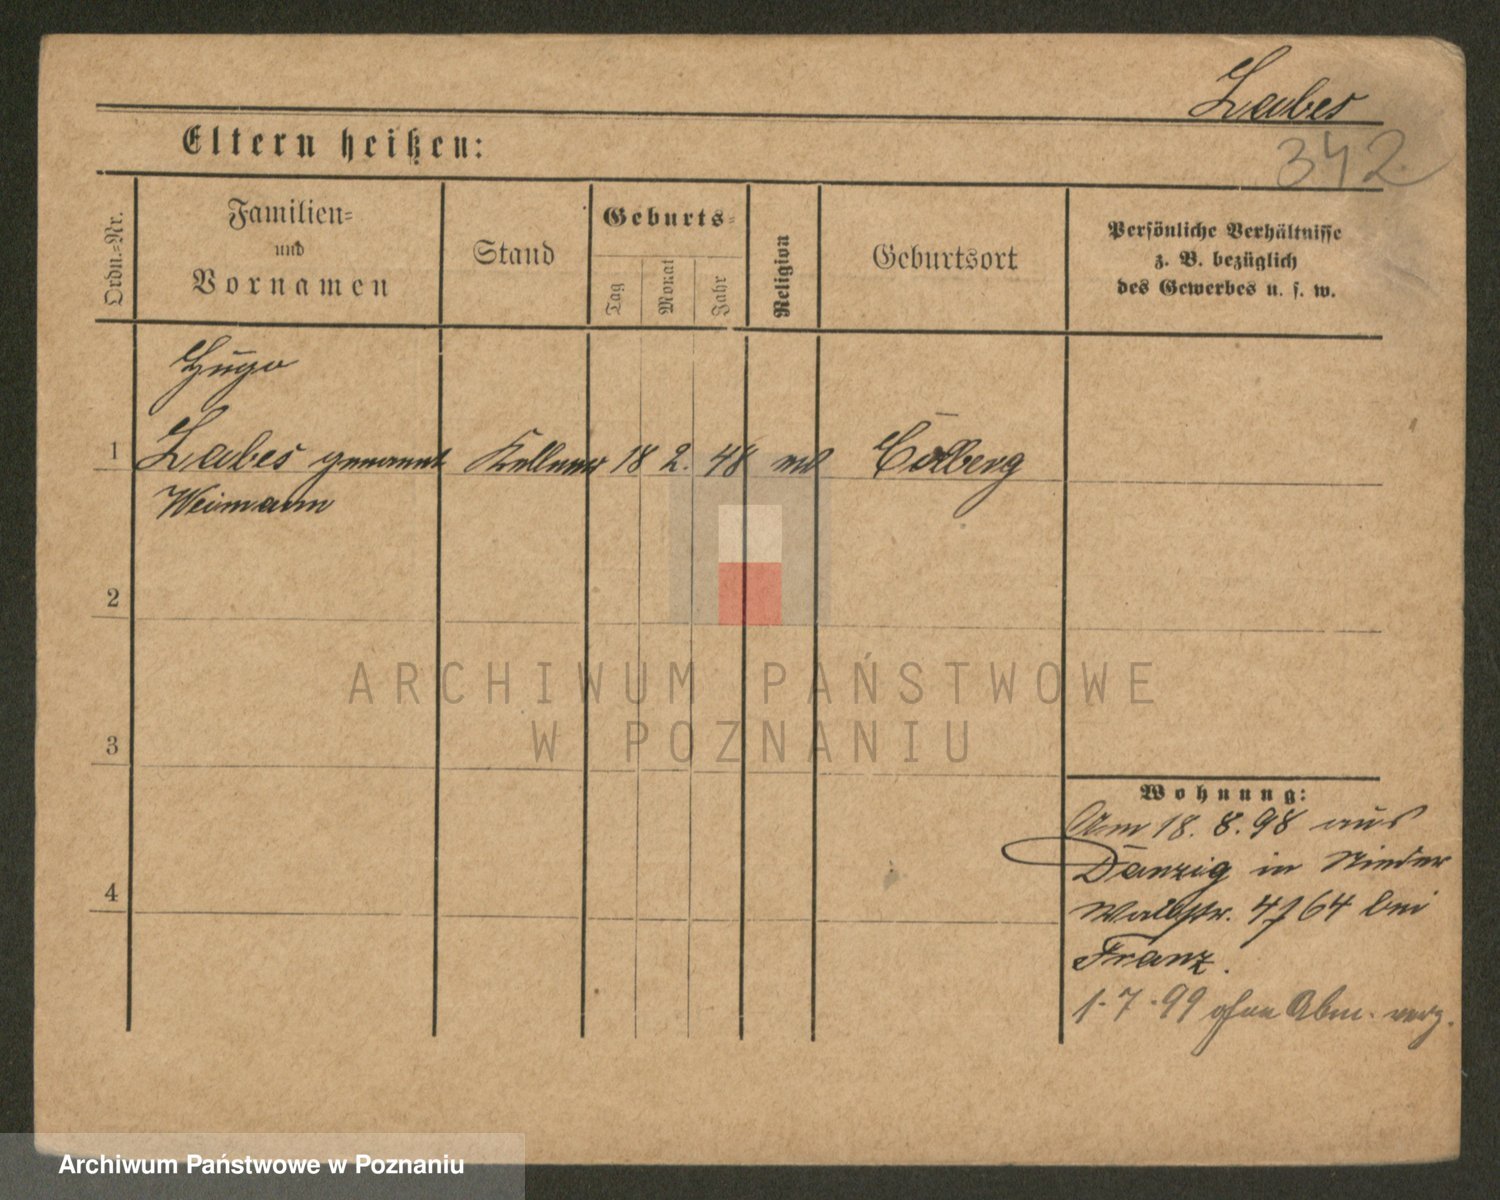 Labes
342.
Eltern heißen:
Ordn.=Nr.
Familien=
und
Vornamen
Stand
Geburts=
Tag
Monat
Jahr
Religion
Geburtsort
Persönliche Verhältnisse
z. B. bezüglich
des Gewerbes u. s. w.
Hugo
1 Labes genannt Kellner 18 2. 48 Colberg
Weimann
2
3
4
Wohnung:
Am 18. 8. 98 aus
Danzig in Nieder
Wallstr. 4 / 64 bei
Franz.
1.7.99 ohne Abm. verz.
ARCHIWUM PAŃSTWOWE
W POZNANIU
Archiwum Państwowe w Poznaniu